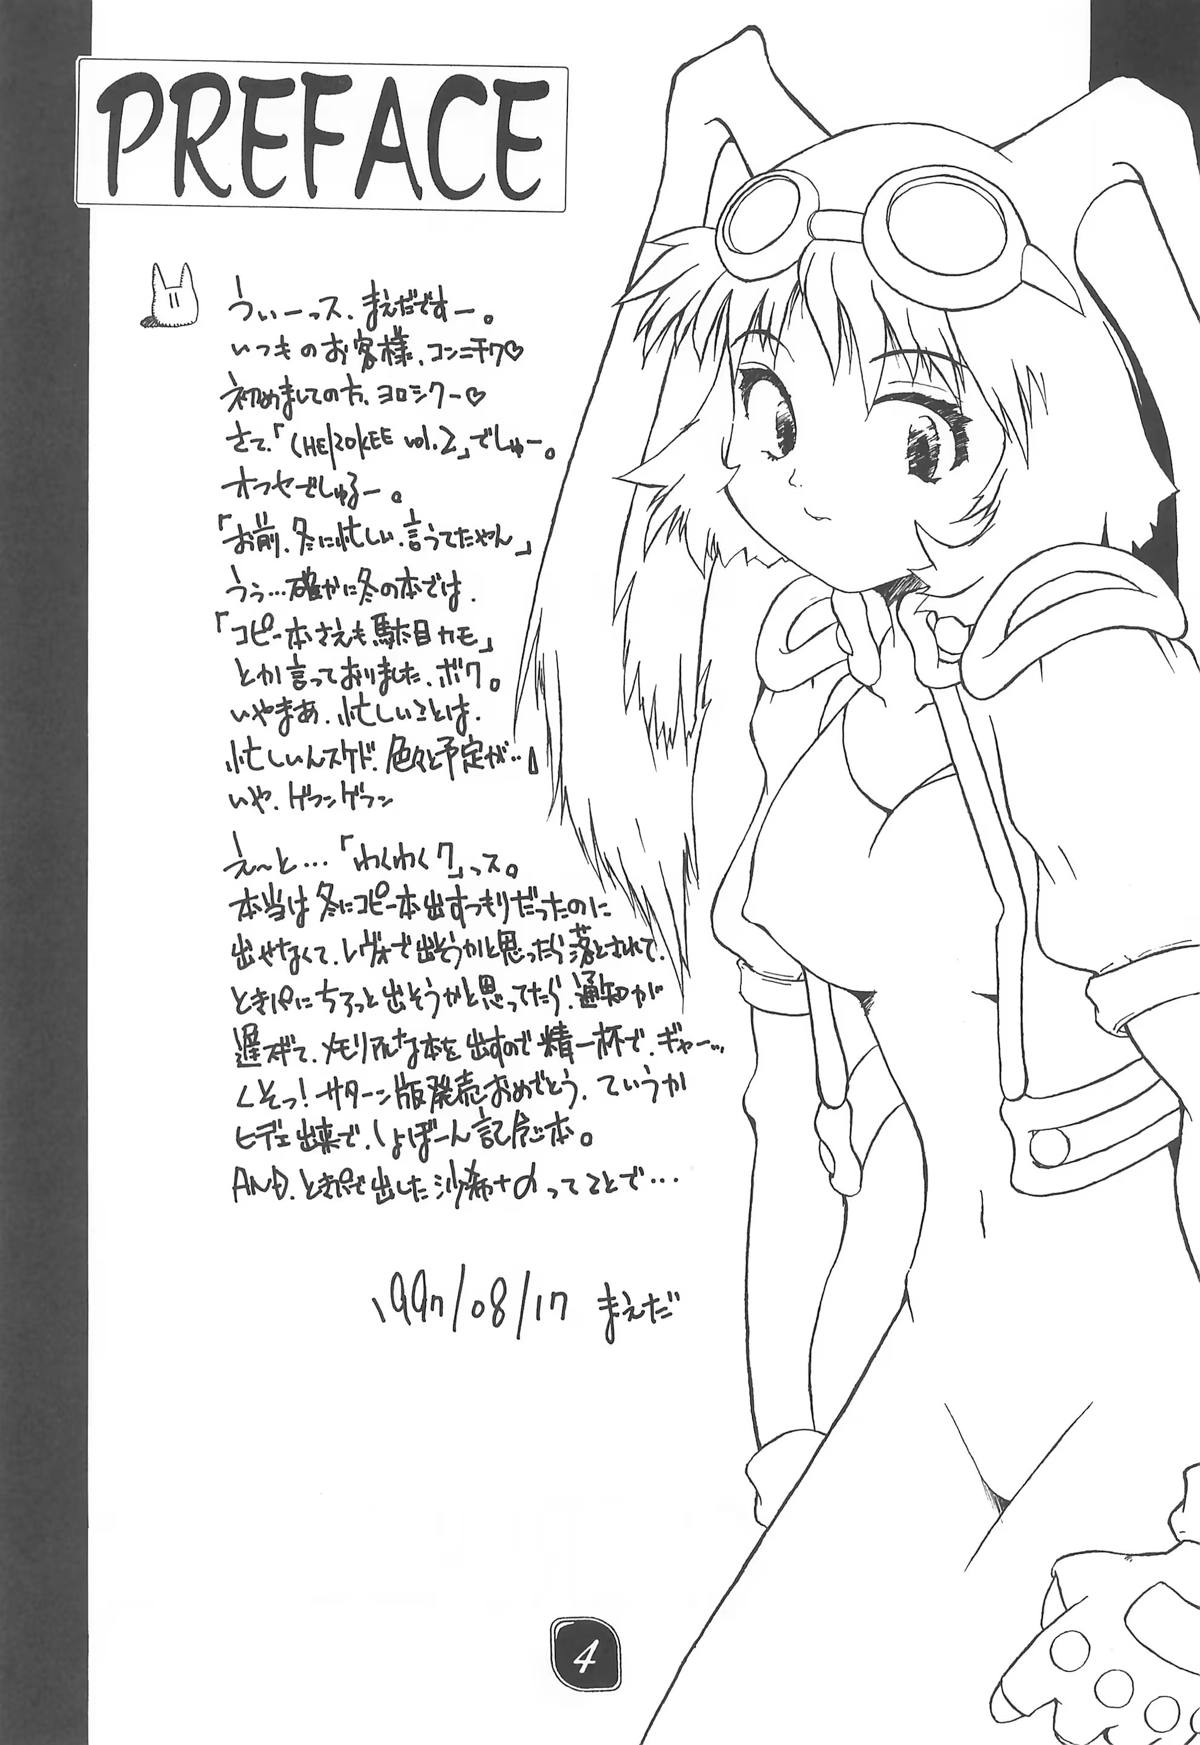 PREFACE
うぃーっス、まえだですー。
いつものお客様、コンニチワ♡
初めましての方、ヨロシクー♡
さて、「CHEROKEE vol.2」でしゅー。
オフセでしゅるー。
「お前、冬に忙しい、言うてたやん」
うぅ…確かに冬の本では、
「コピー本さえも駄目カモ」
とか言っておりました、ボク。
いやまあ、忙しいことは、
忙しいんスケド、色々と予定が…。
いや、ゲフンゲフン
え〜と…「わくわく7」っス。
本当は冬にコピー本出すつもりだったのに
出せなくて、レヴォで出そうかと思ったら落とされて、
ときパにちろっと出そうかと思ってたら、通知が
遅すぎて、メモリアルな本を出すので精一杯で、ギャー…
くそっ!サターン版発売おめでとう、ていうか
ヒデェ出来で、しょぼーん記念本。
AND、ときパで出した沙希+αってことで…
1997/08/17 まえだ
4